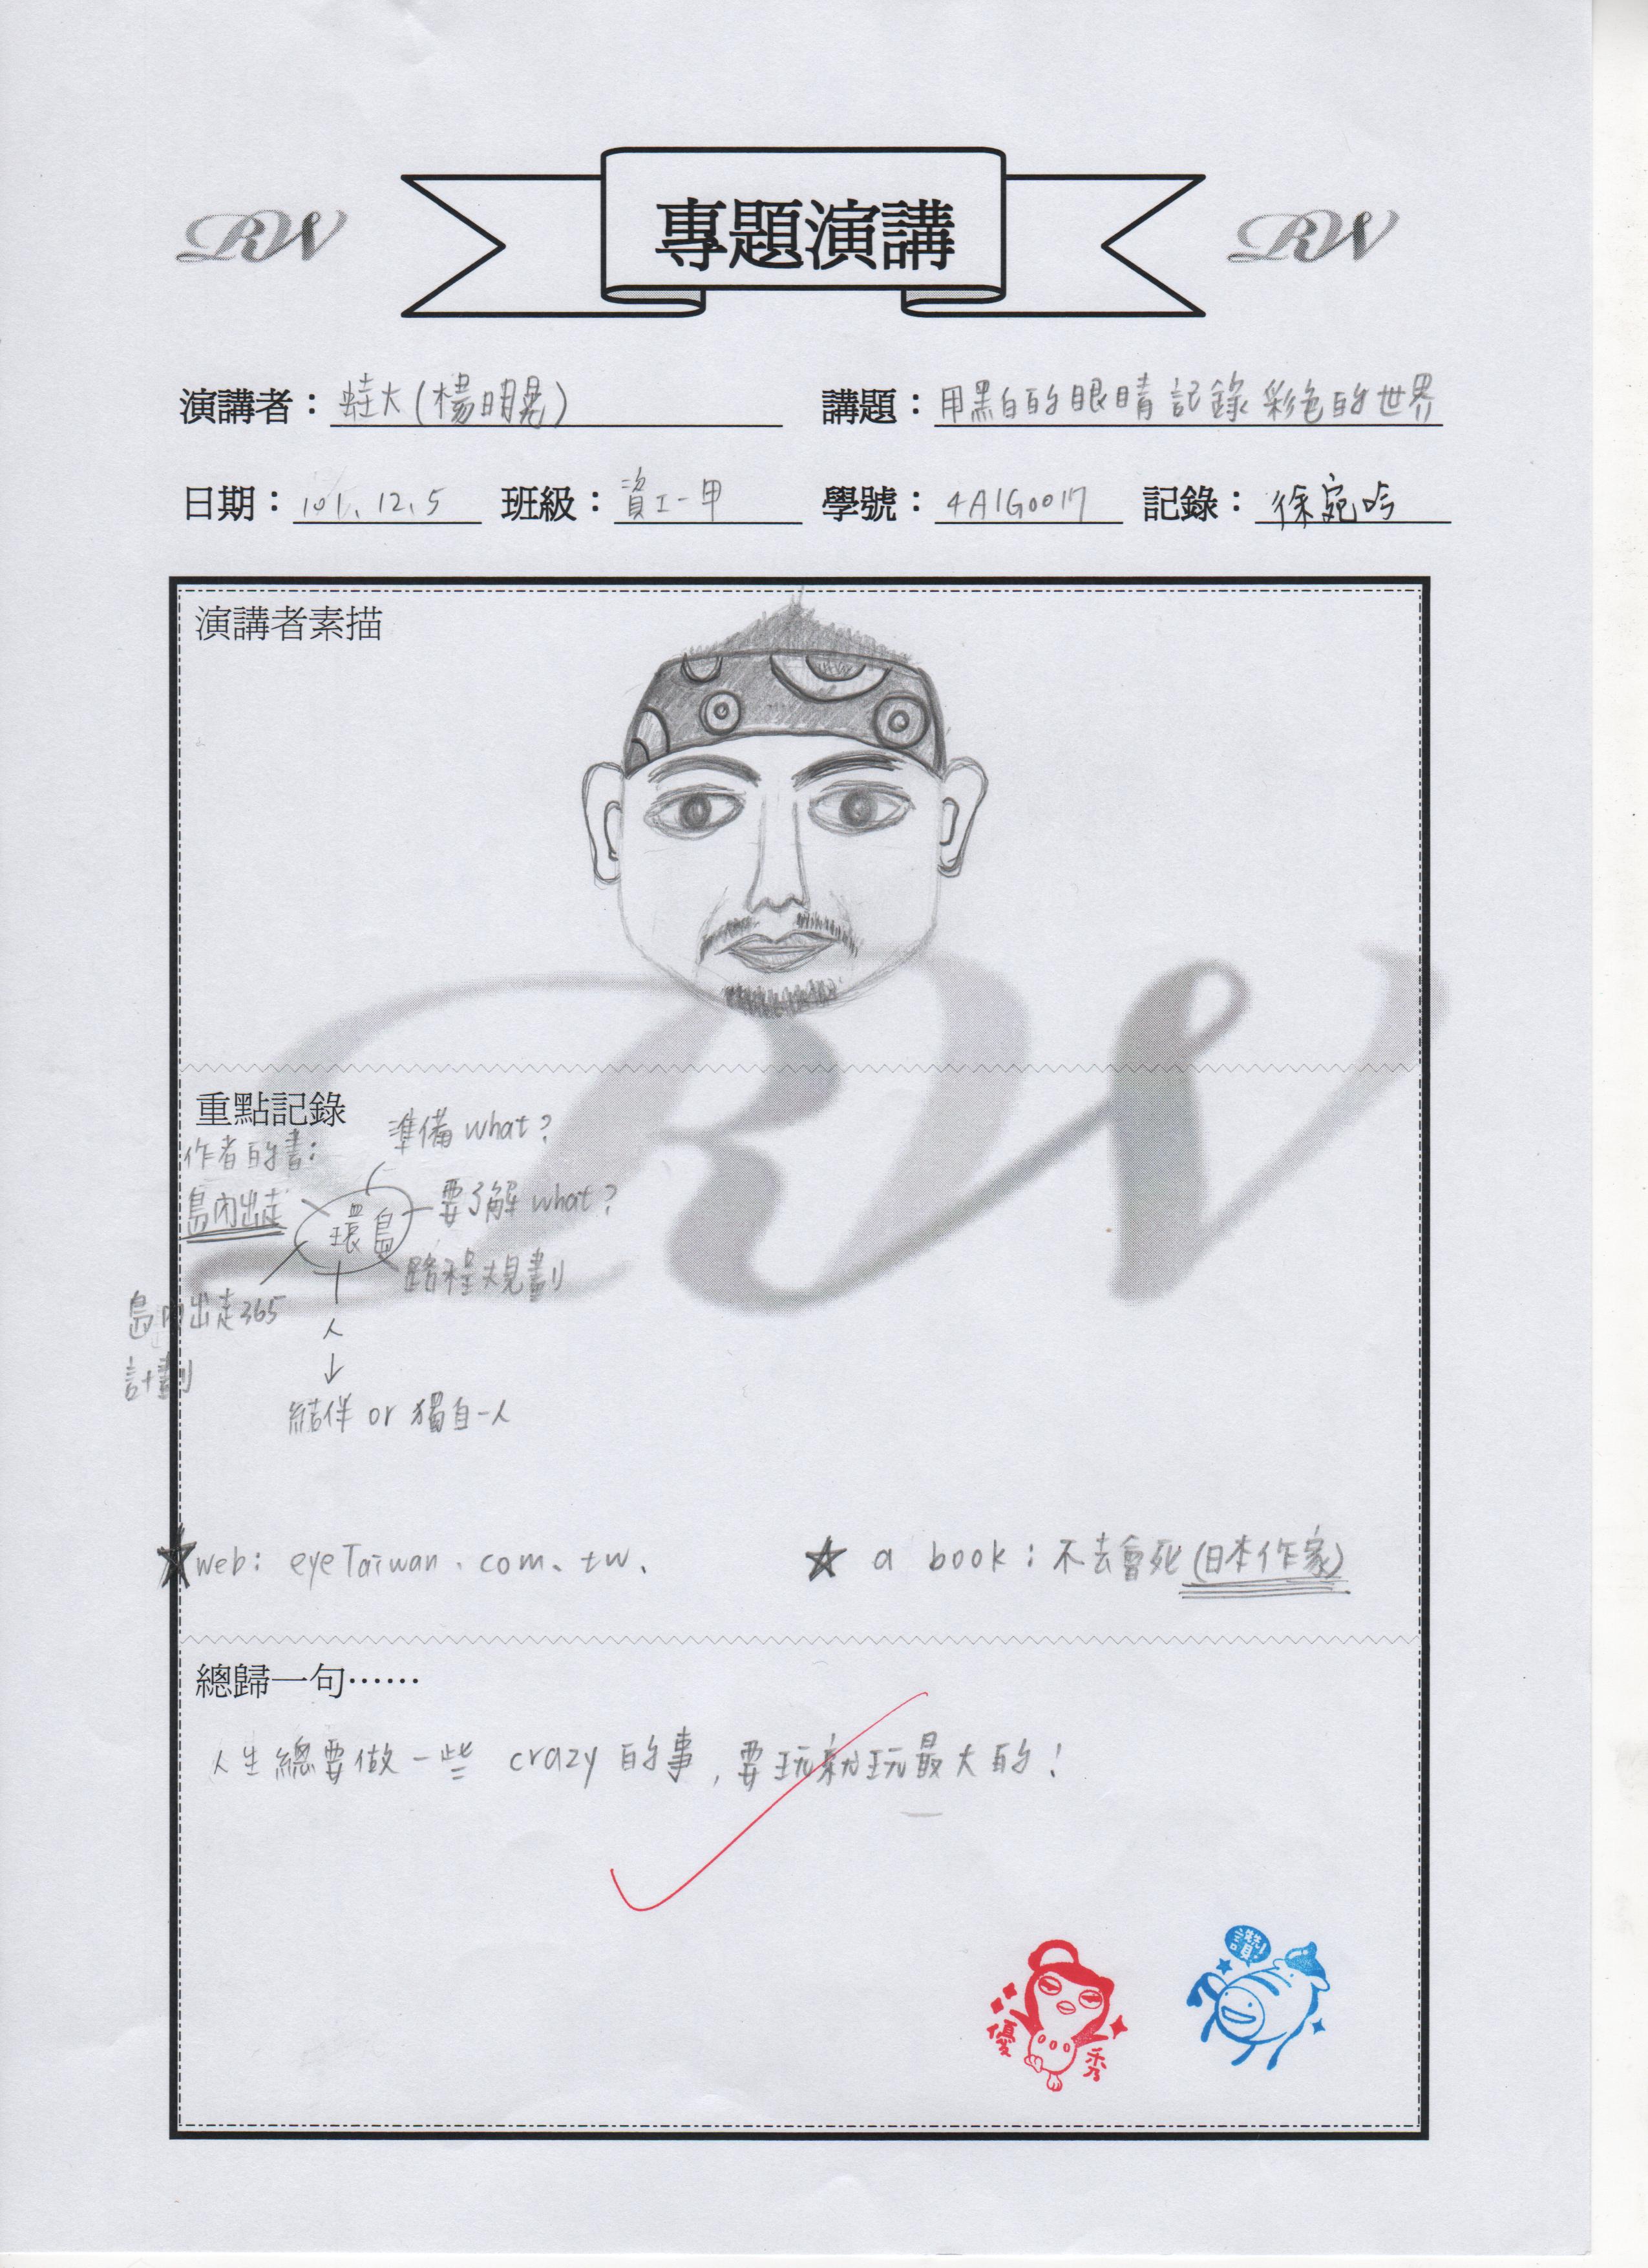 RW
專題演講
RW
演講者：蛙大(楊明晃)
講題：用黑白的眼睛記錄彩色的世界
日期：101.12.5 班級：資工一甲 學號：4A1G0017 記錄：徐宛吟
演講者素描
RW
重點記錄
準備 what?
作者的書：
島內出走
環島
要了解 what?
路程規劃
島內出走365
計劃
人
↓
結伴 or 獨自一人
★web: eyeTaiwan.com.tw.
★ a book：不去會死(日本作家)
總歸一句……
人生總要做一些 crazy 的事，要玩就玩最大的！
讚!
優秀